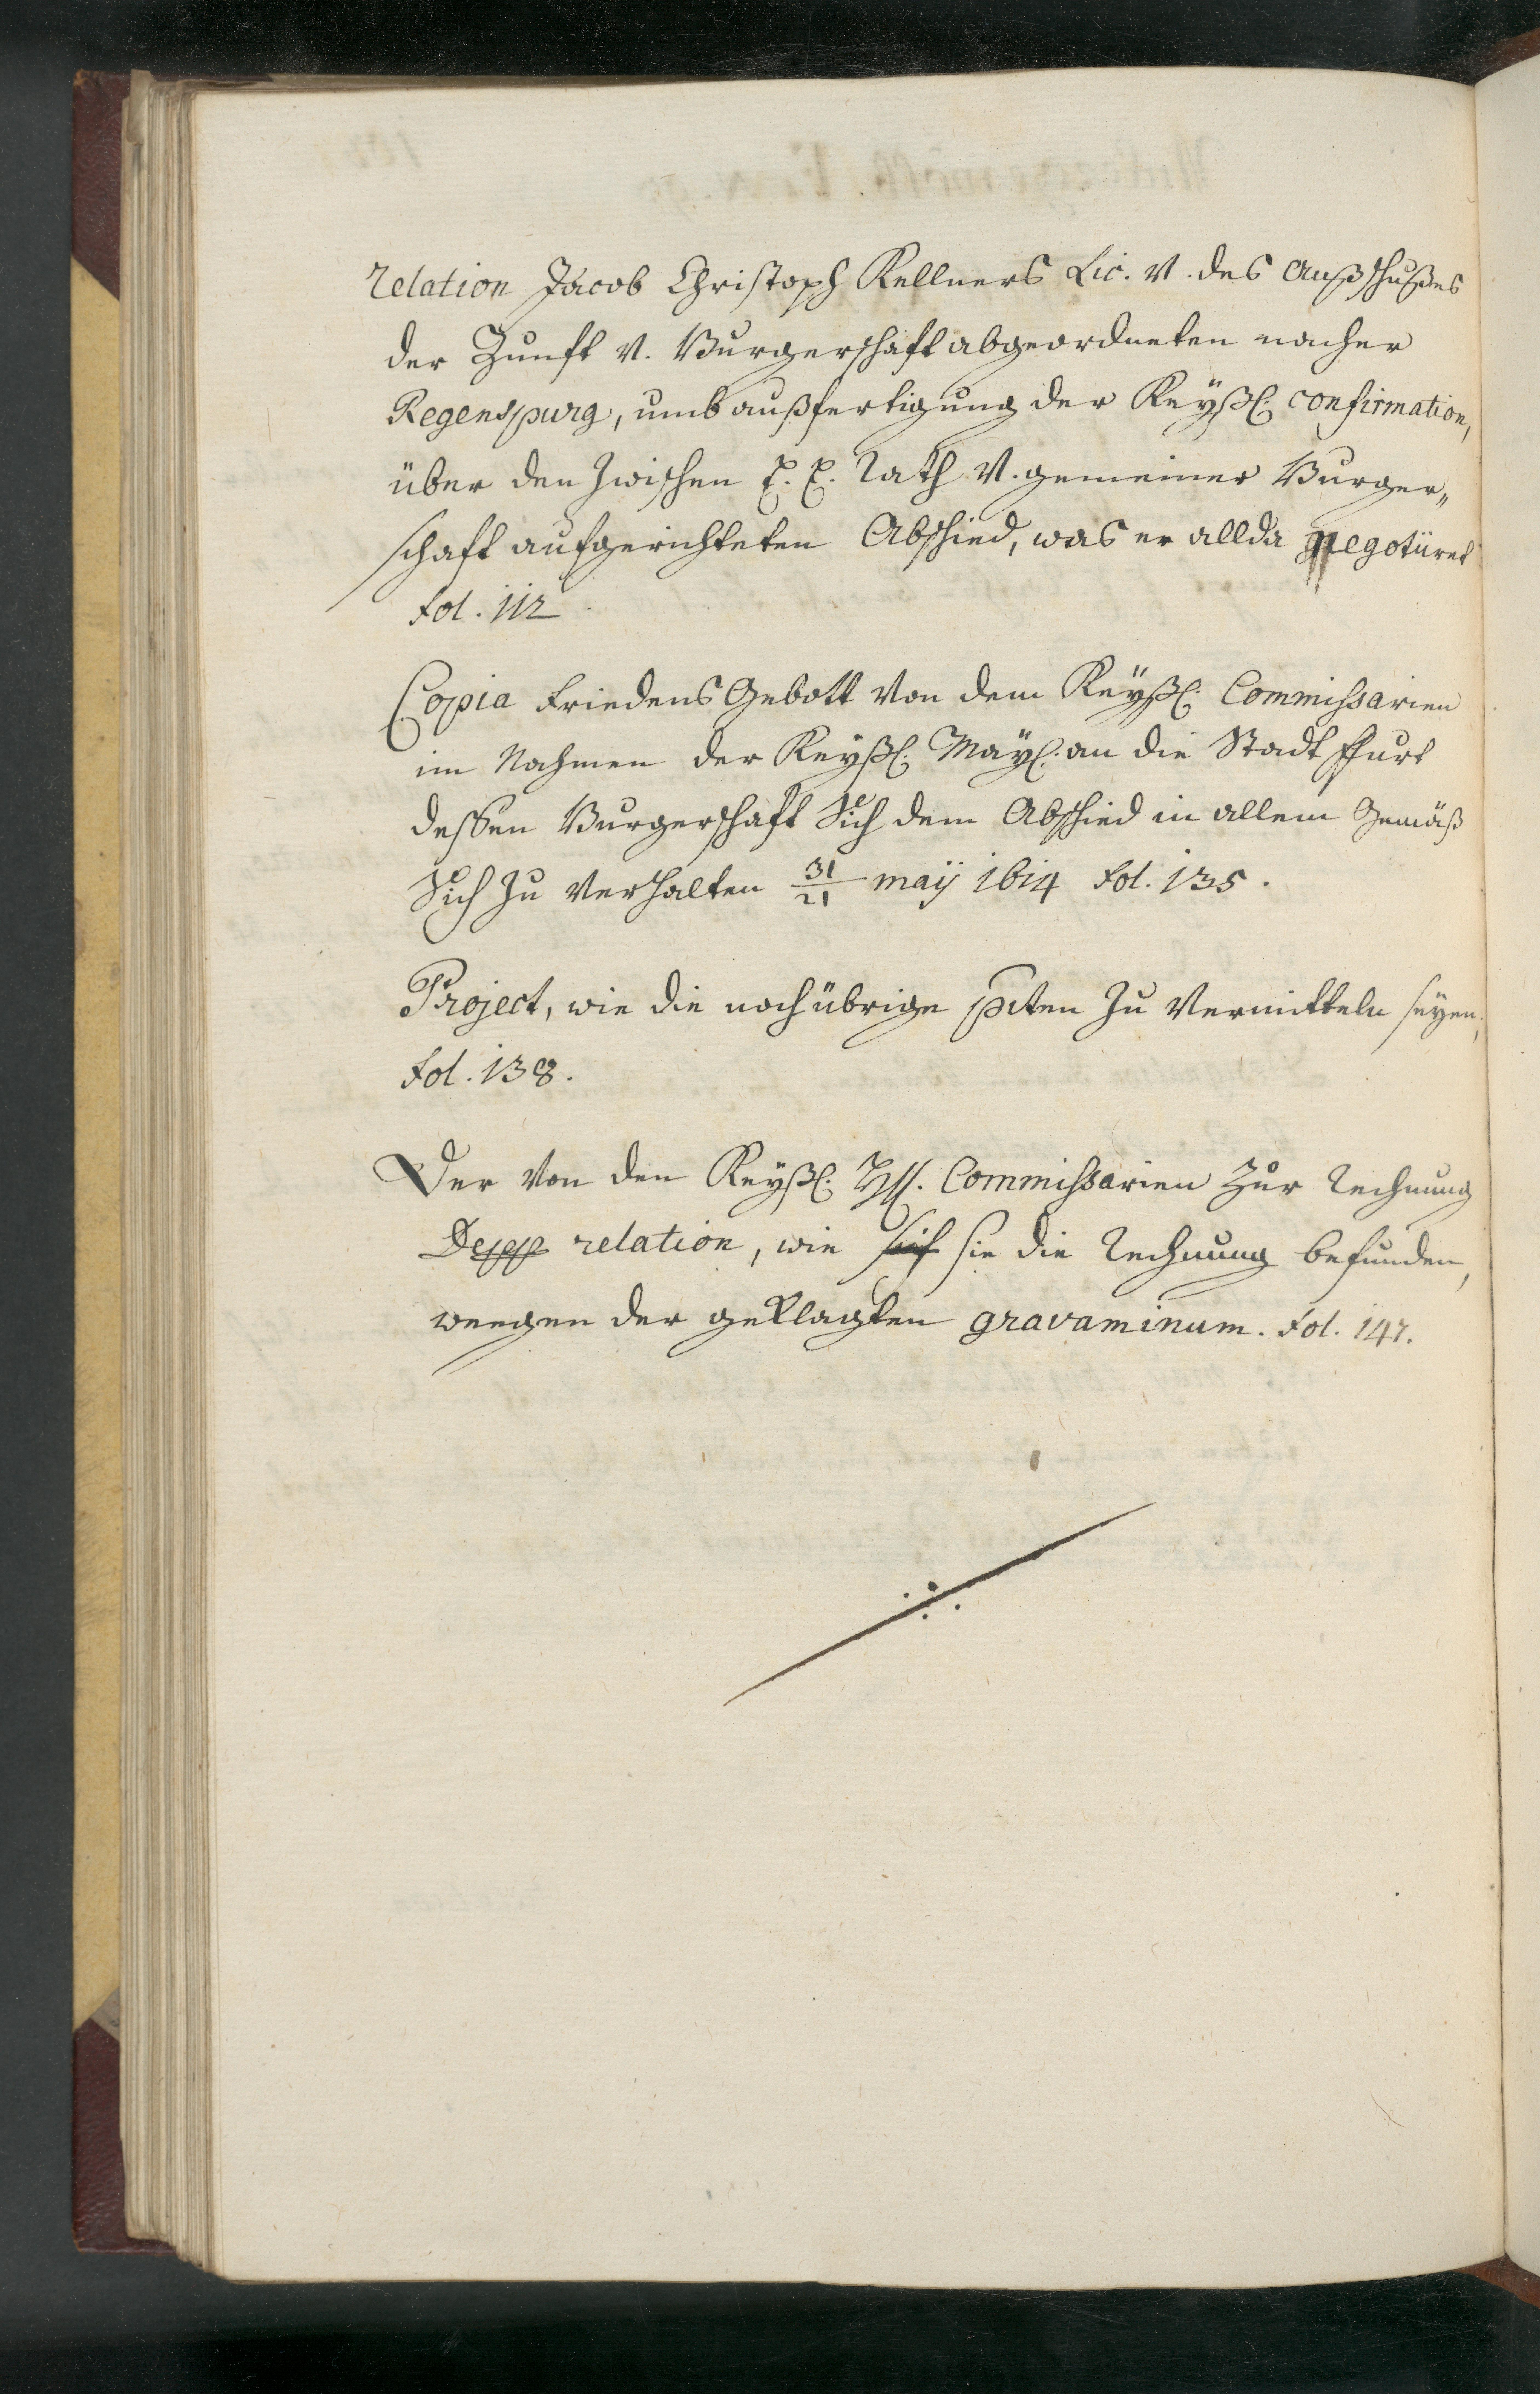 relation Jacob Christoph Kellners Lic. v. des Außschußes
der Zunfft v. Burgerschafft abgeordneten nacher
Regenspurg, umb außfertigung der Keyßl. confirmation,
über den zwischen E. E. Rath v. gemeiner Burger„
schafft aufgerichteten Abschied, was er allda negotiiret
fol. 112
Copia Friedens Gebott von dem Keyßl. Commissarien
im Nahmen der Keyßl. May. an die Stadt ffurt
dessen Burgerschafft sich dem Abschied in allem Gemäß
sich zu verhalten 31/21 maÿ 1614 fol. 135.
Project, wie die noch übrige pcten zu vermitteln seyen,
fol. 138.
Der von den Keyßl. HH. Commissarien zur Rechnung
relation, wie sich sie die Rechnung befunden,
weegen der geklagten gravaminum. fol. 147.